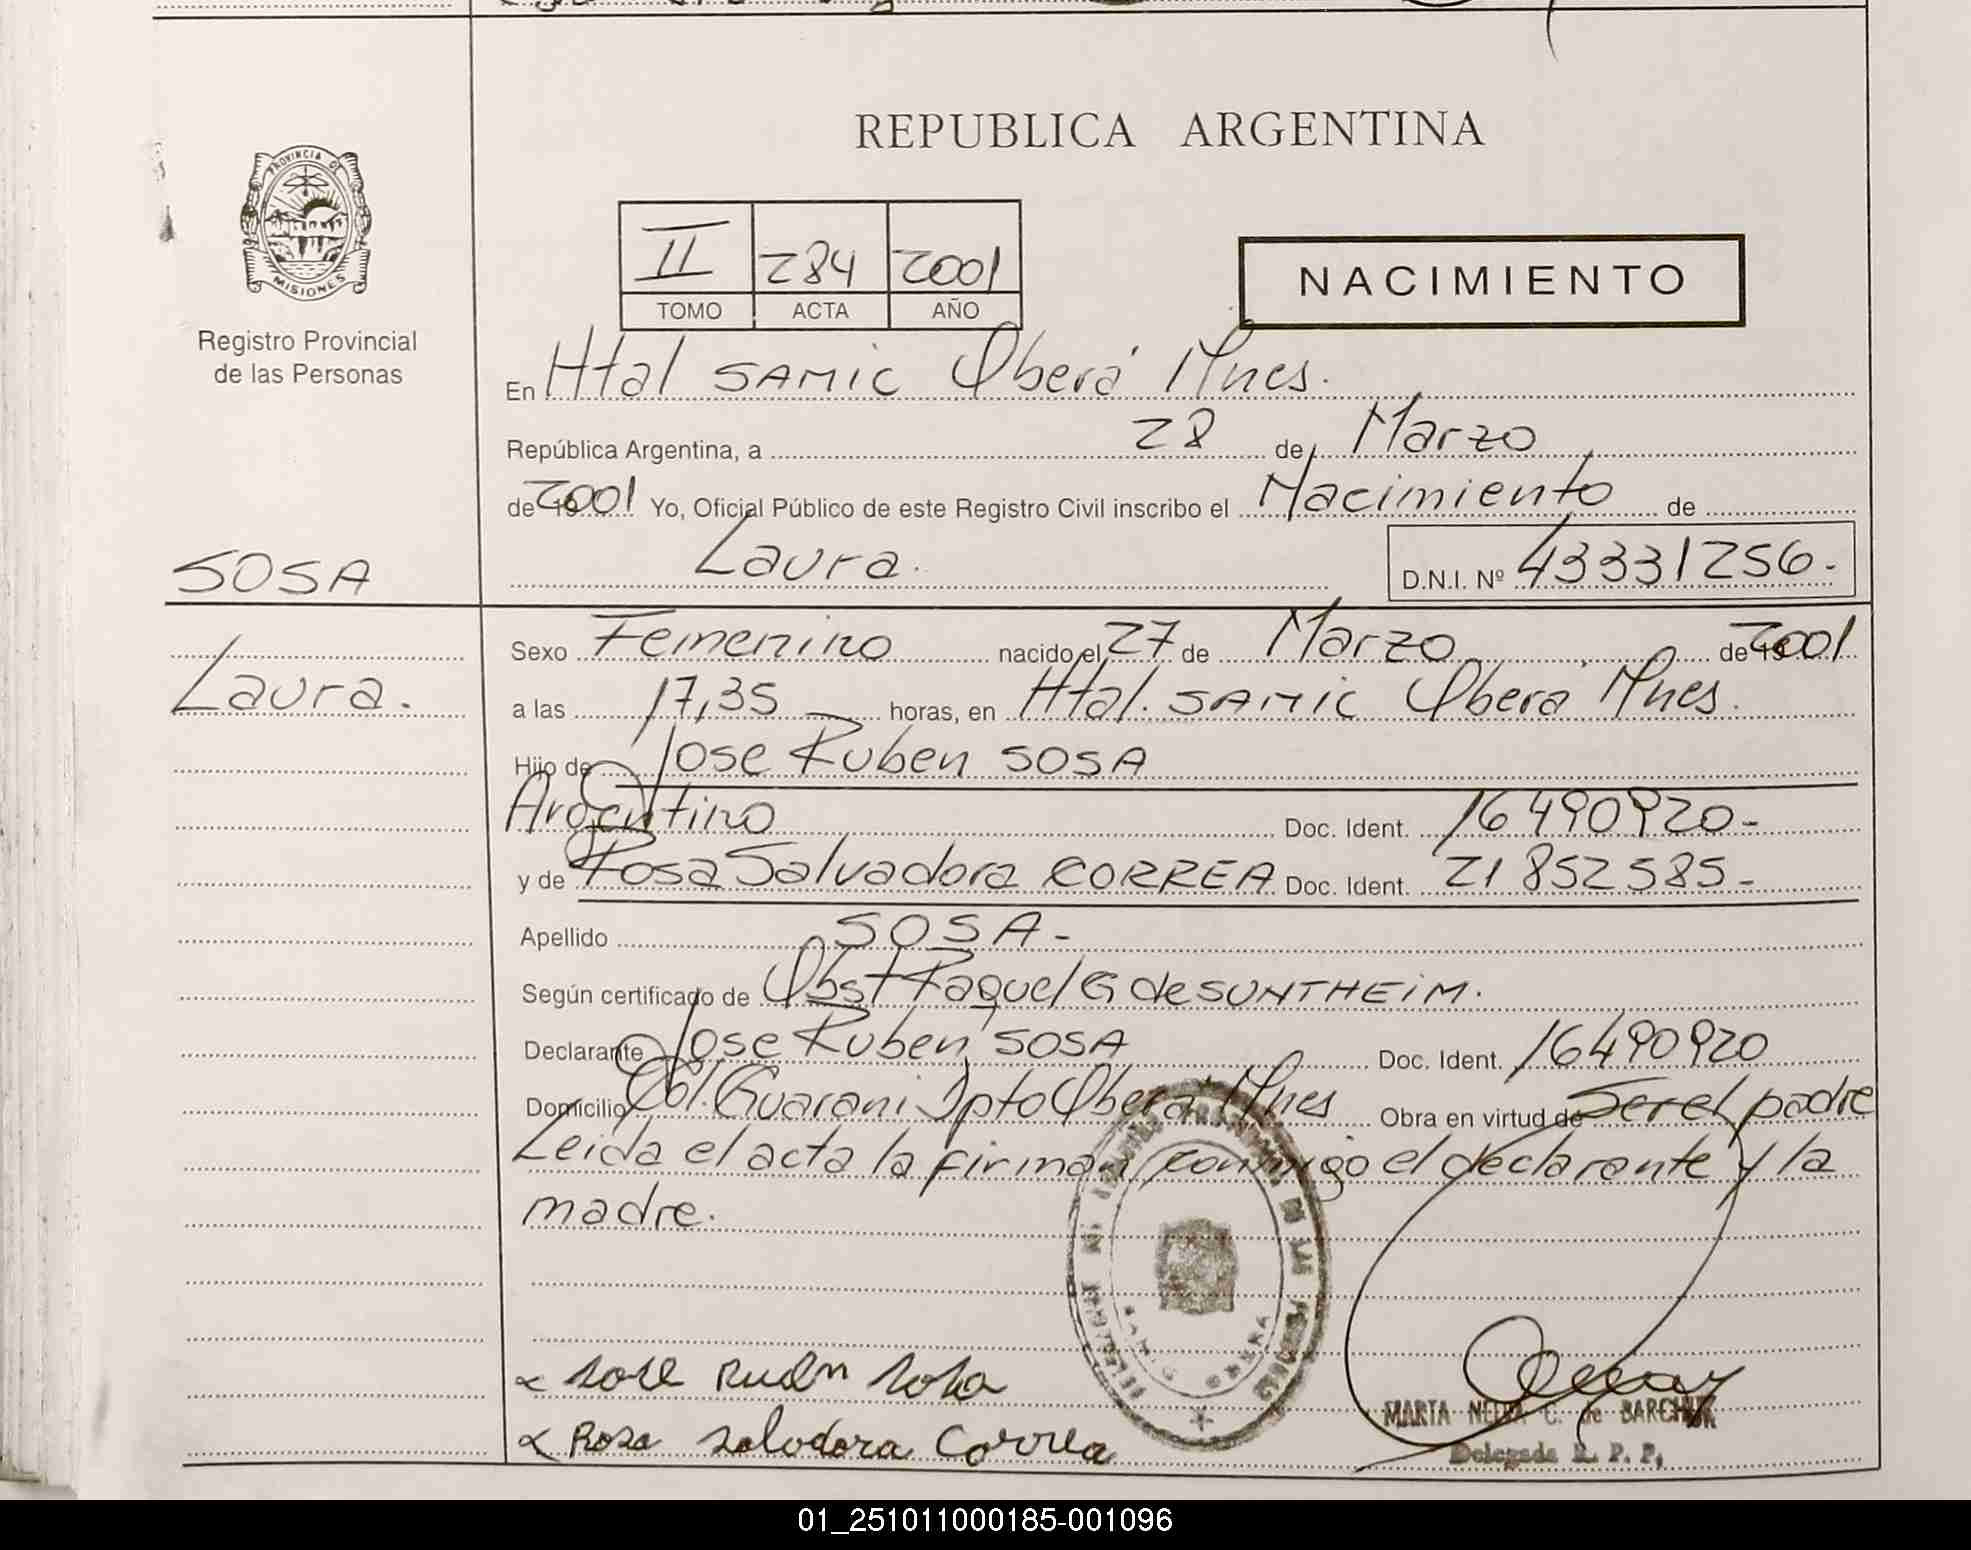 REPUBLICA ARGENTINA
PROVINCIA DE
MISIONES
Registro Provincial
de las Personas
II 284 2001
TOMO ACTA AÑO
NACIMIENTO
En Htal SAMIC Oberá Mnes.
República Argentina, a 28 de Marzo
de 2001 Yo, Oficial Público de este Registro Civil inscribo el Nacimiento de
Laura. D.N.I. Nº 43331256.-
SOSA
Laura.
Sexo Femenino nacido el 27 de Marzo de 2001
a las 17,35 horas, en Htal. SAMIC Oberá Mnes.
Hijo de Jose Ruben SOSA
Argentino Doc. Ident. 16490920-
y de Rosa Salvadora CORREA Doc. Ident. 21852585-
Apellido SOSA-
Según certificado de Obst Raquel G de SUNTHEIM.
Declarante Jose Ruben SOSA Doc. Ident. 16490920
Domicilio Col. Guarani Dpto Oberá Mnes Obra en virtud de Ser el padre
Leida el acta la firman conmigo el declarante y la
madre.
Jose Ruben Sosa
Rosa Salvadora Correa
MARTA C. de
Delegada R. P. P.
01_251011000185-001096